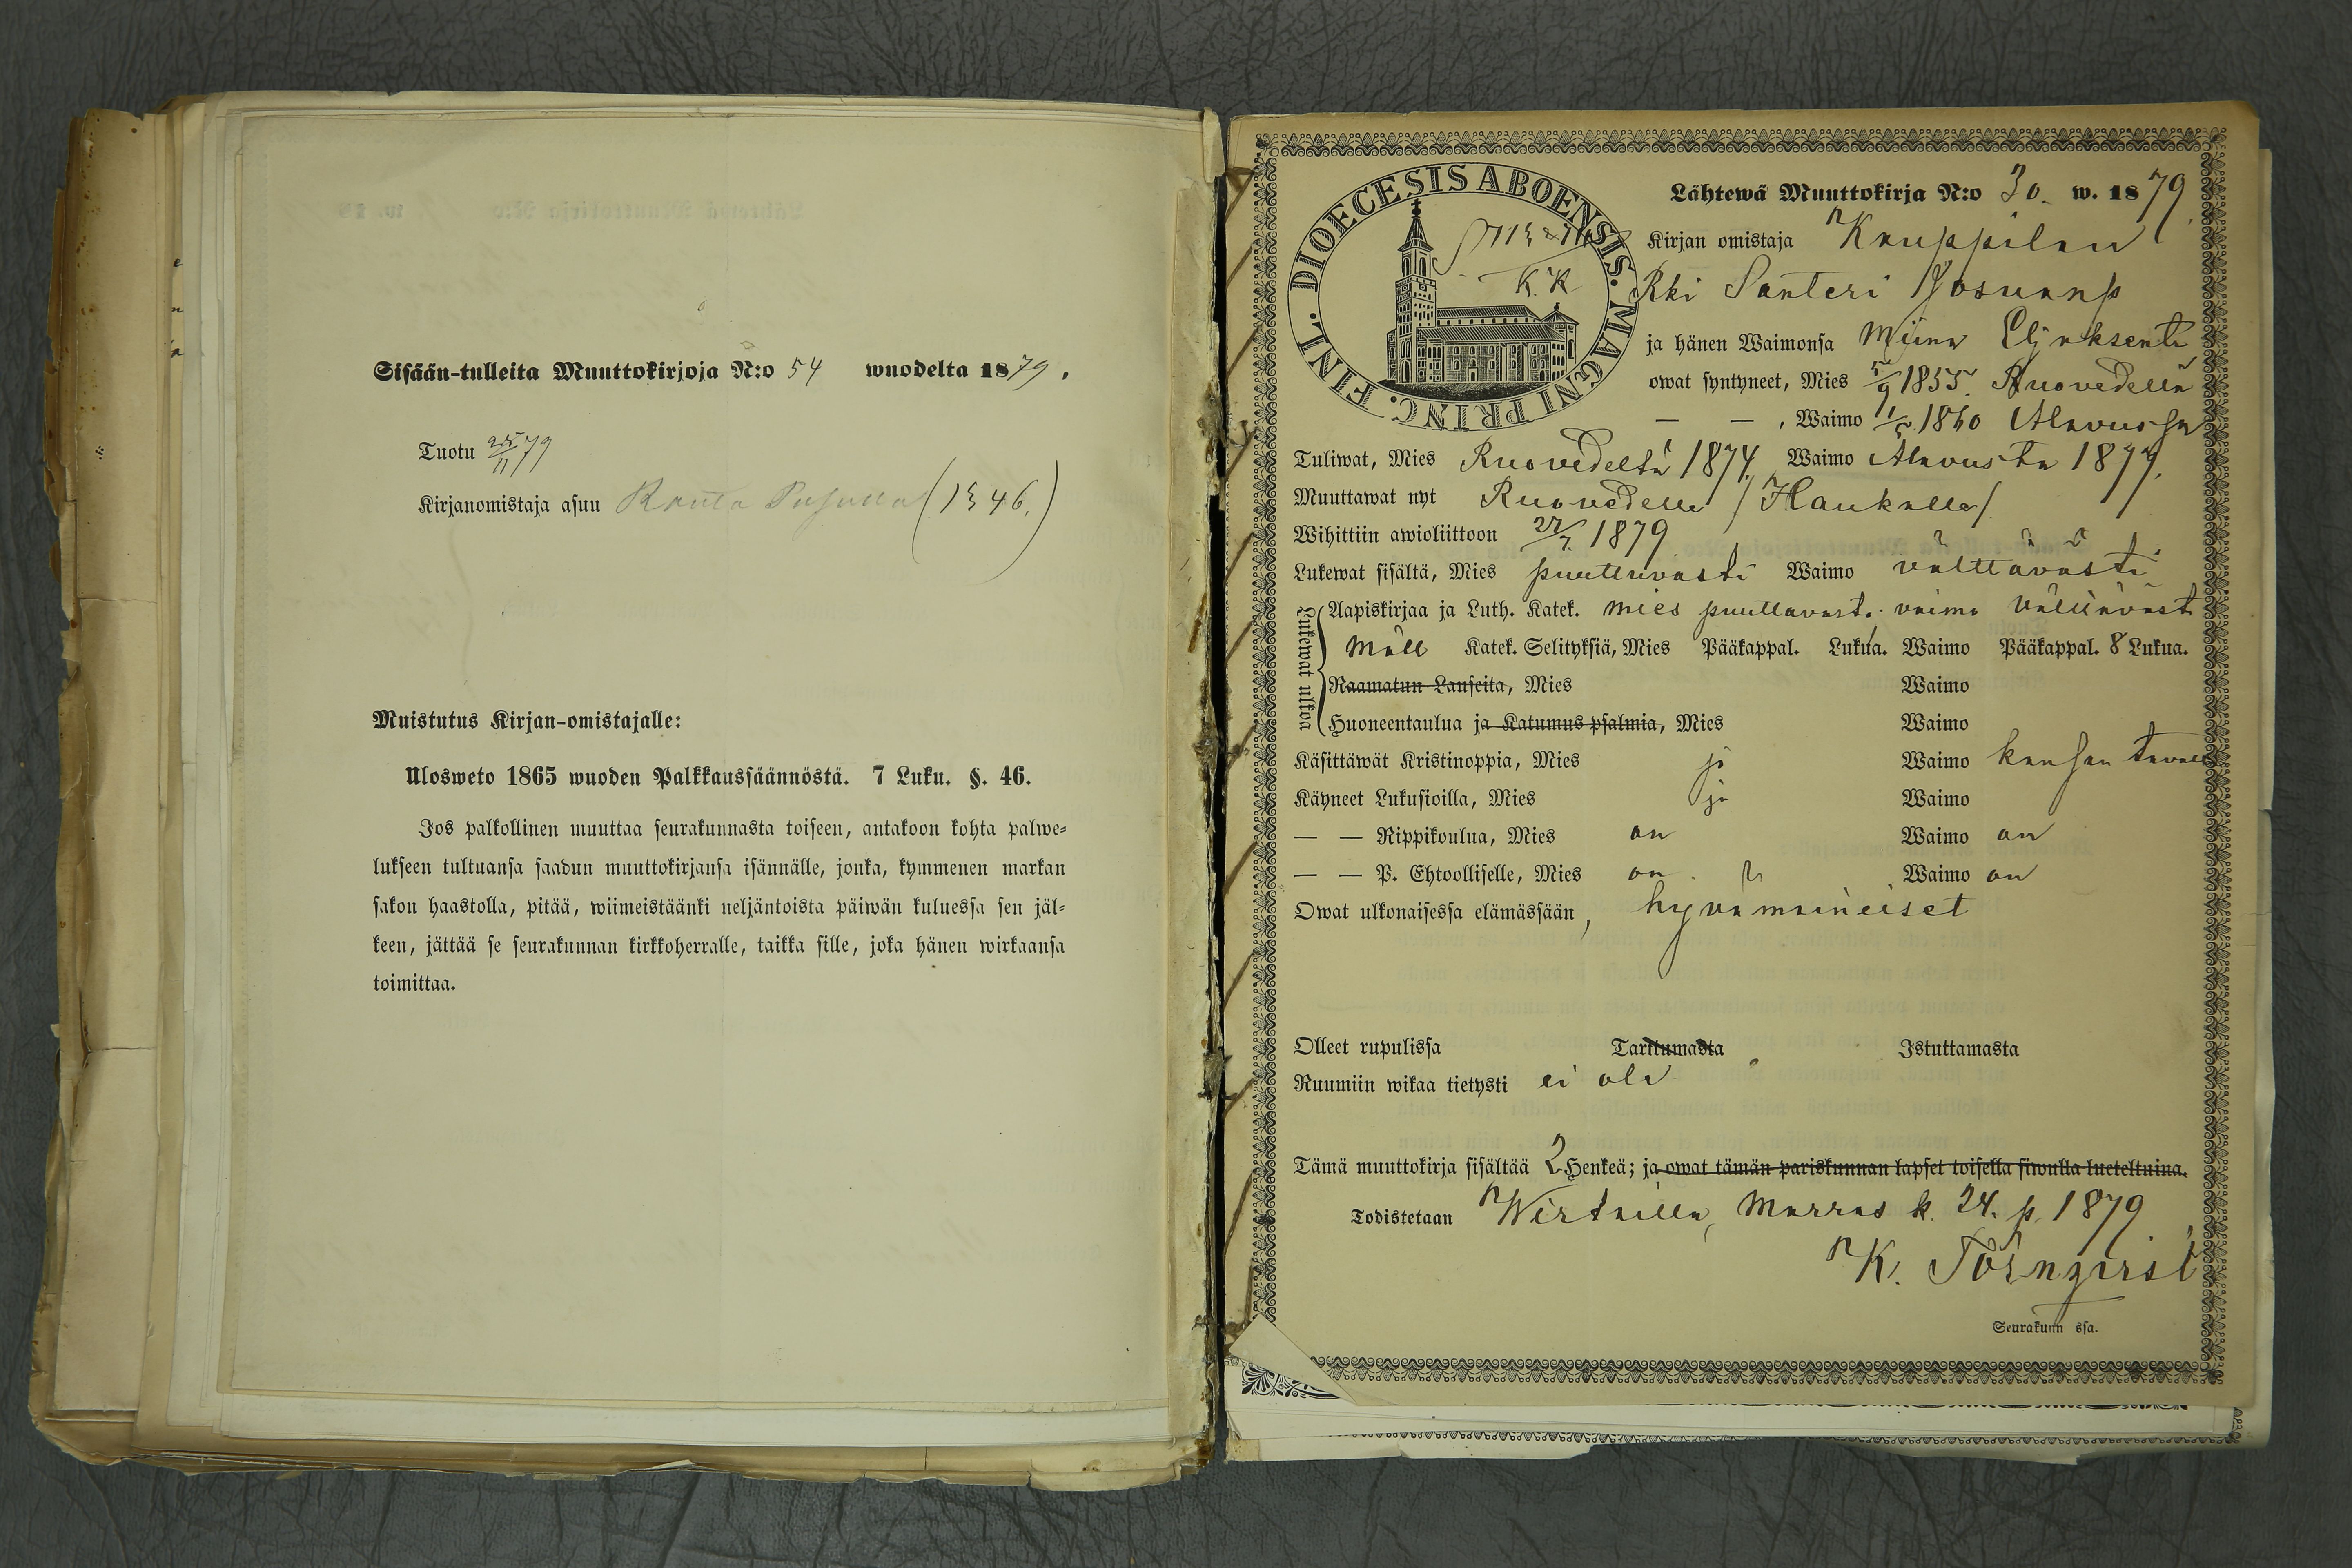 Sisään-tulleita Muuttokirjoja N:o 54 wuodelta 1879.
Tuotu 25/11 79
Kirjanomistaja asuu
Muistutus Kirjan-omistajalle:
Ulosweto 1865 wuoden Palkkaussäännöstä. 7 Luku. §. 46.
Jos palkollinen muuttaa seurakunnasta toiseen, antakoon kohta palwe-
lukseen tultuansa saadun muuttokirjansa isännälle, jonka, kymmenen markan
sakon haastolla, pitää, wiimeistäänki neljäntoista päiwän kuluessa sen jäl-
keen, jättää se seurakunnan kirkkoherralle, taikka sille, joka hänen wirkaansa
toimittaa.
DIOECESIS ABOENSIS. MAGNI PRINC. FINL.
K. K
Lähtewä Muuttokirja N:o 30. w. 1879.
Kirjan omistaja Kauppilan
Rki Santeri
ja hänen Waimonsa Miina Eljaksent.
owat syntyneet, Mies 5/9 1855. Ruovedellä
— — , Waimo 1860 Alavussa
Tuliwat, Mies Ruovedeltä 1874, Waimo Alavusta 1877.
Muuttawat nyt Ruovedelle / Haukalle /
Wihittiin awioliittoon 27/7 1879.
Lukewat sisältä, Mies puuttuvasti Waimo välttävästi
Lukewat ulkoa
Aapiskirjaa ja Luth. Katek. mies puuttuvasti vaimo välttävästi
Möll Katek. Selityksiä, Mies Pääkappal. Lukua. Waimo Pääkappal. 8 Lukua.
Raamatun Lauseita, Mies Waimo
Huoneentaulua ja Katumus psalmia, Mies Waimo
Käsittäwät Kristinoppia, Mies Waimo kansan
Käyneet Lukusioilla, Mies Waimo
— — Rippikoulua, Mies on Waimo on
— — P. Ehtoolliselle, Mies on Waimo on
Owat ulkonaisessa elämässään, hyvämaineiset
Olleet rupulissa Tarttumasta Istuttamasta
Ruumiin wikaa tietysti ei ole
Tämä muuttokirja sisältää 2 Henkeä; ja owat tämän pariskunnan lapset toisella siwulla lueteltuina.
Todistetaan Wirtailla, Marras k. 24. p. 1879
K. Törnqvist
Seurakunn ssa.